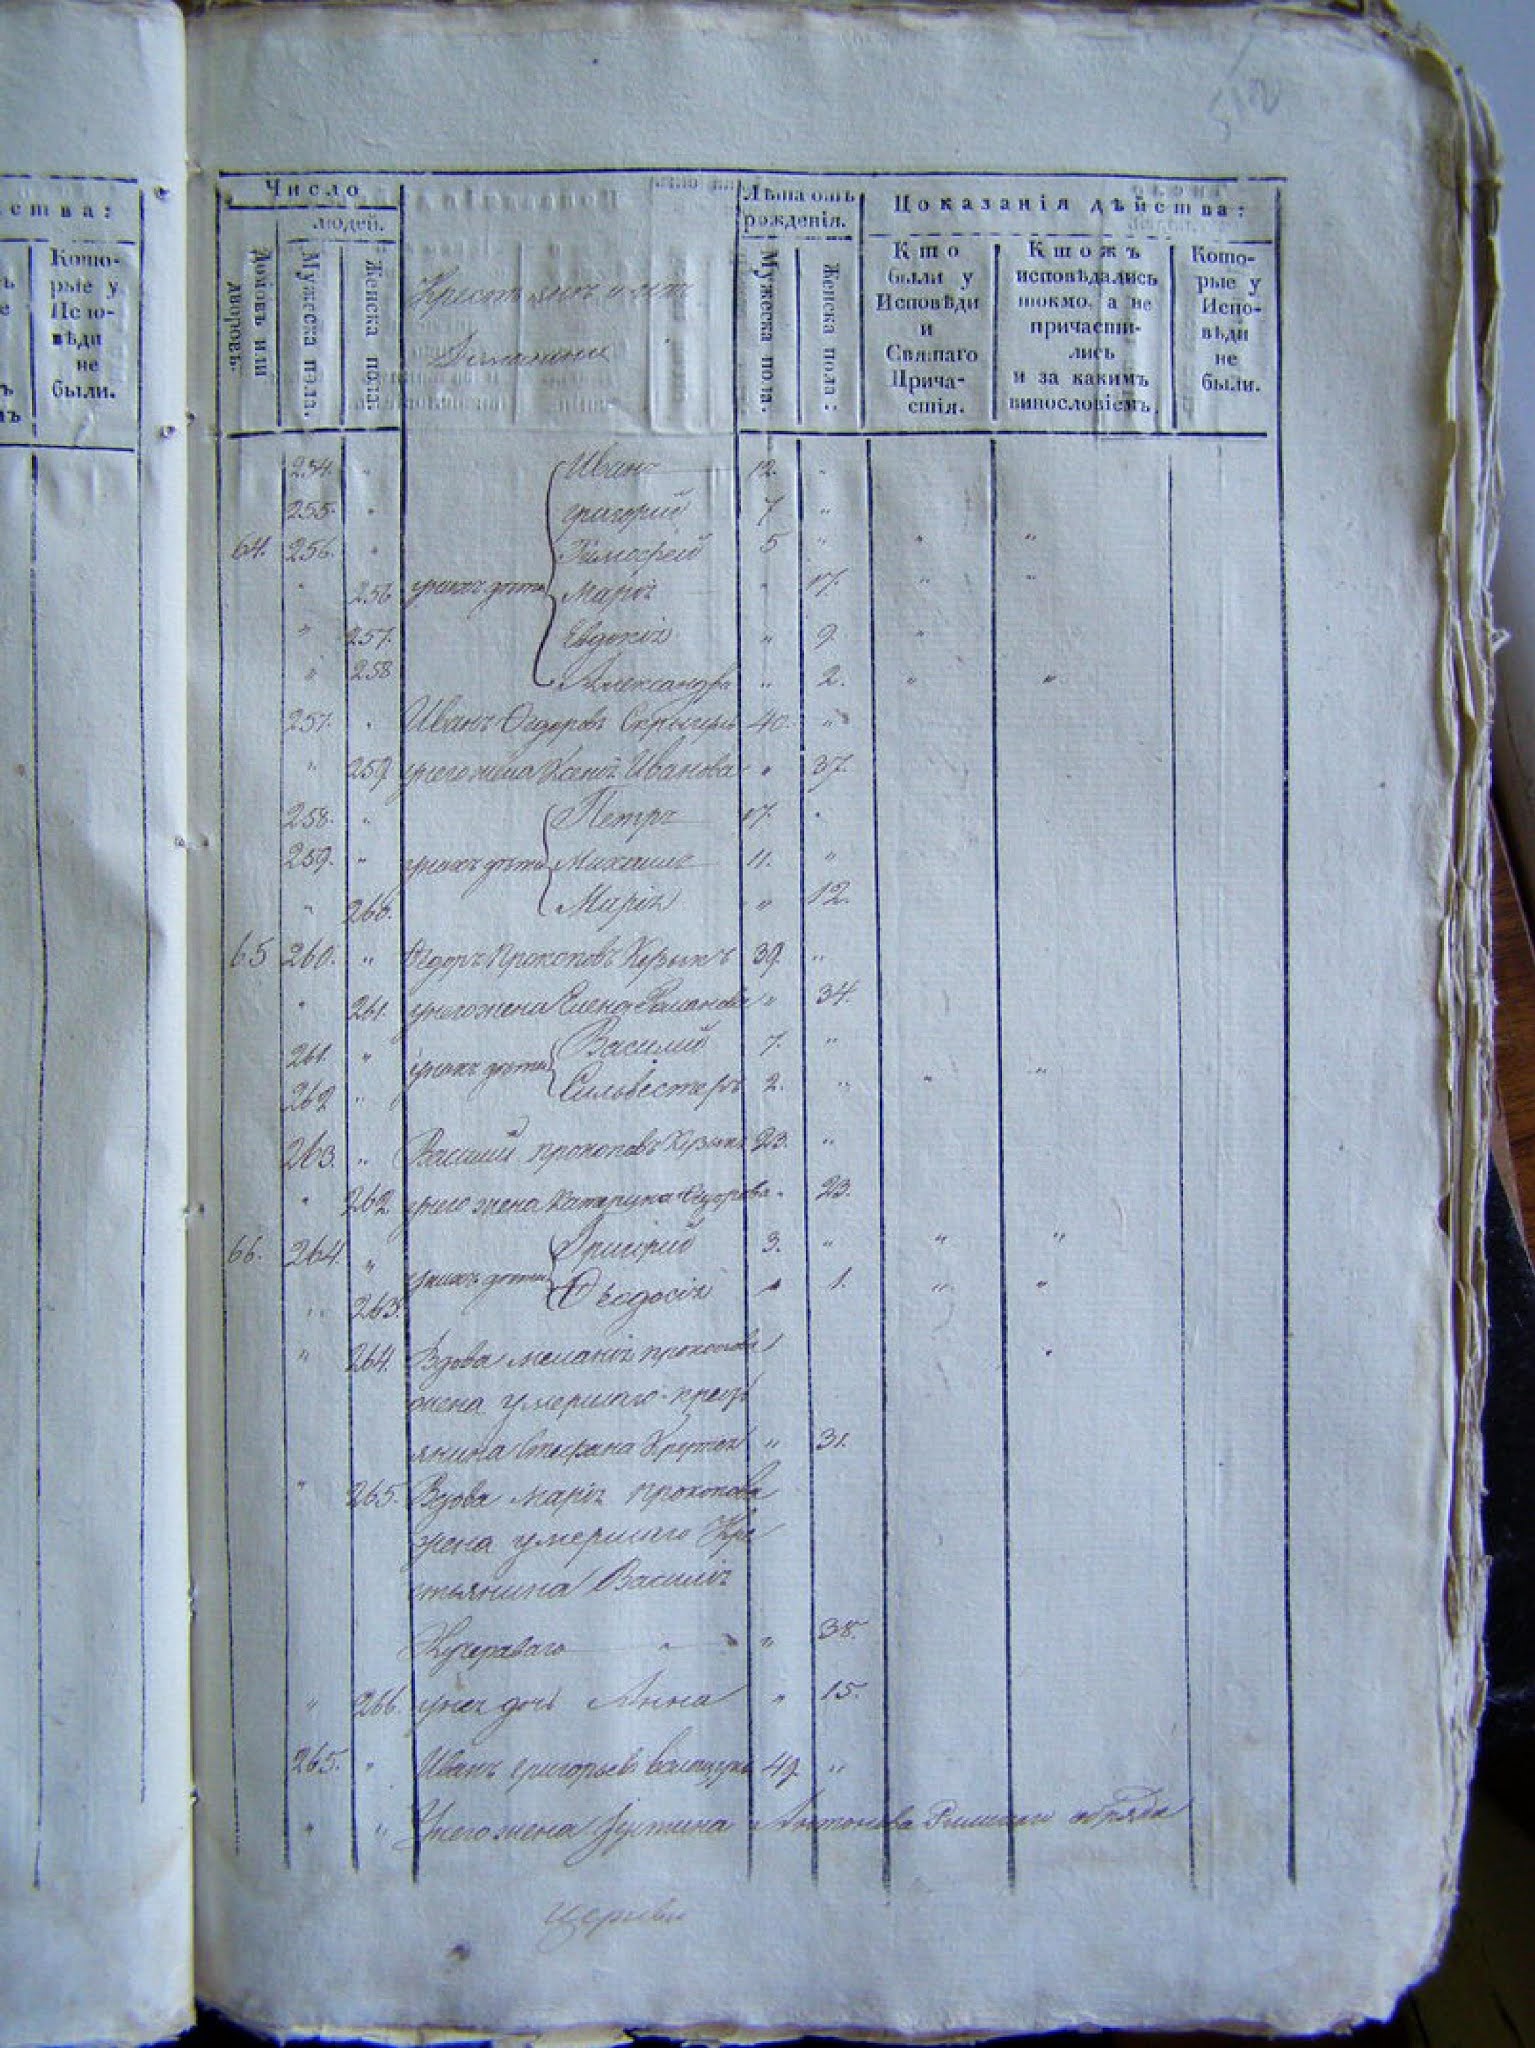 ства:
Кото-
рые у
Испо-
вѣди
не
были.
512
Число
людей.
Домовъ или
дворовъ.
Мужеска пола.
Женска пола.
Крестьянъ и ихъ
Домашние
Лѣта отъ
рожденія.
Мужеска пола.
Женска пола:
Показанія дѣйства:
Кто
были у
Исповѣди
и
Святаго
Прича-
стія.
Ктожъ
исповѣдались
токмо, а не
причасти-
лись
и за какимъ
винословіемъ.
Кото-
рые у
Испо-
вѣди
не
были.
254. " Иванъ 12. "
255. " григорий 7 "
64. 256. " Тимофей 5 " " "
" 256 унихъ дѣти Марія " 17. " "
" 257. Евдокія " 9. "
" 258 Александра " 2. " "
257. " Иванъ Федоровъ 40. "
" 259 унего жена Ксенія Иванова " 37.
258. " Петръ 17. "
259. " унихъ дѣти Михаилъ 11. "
" 260. Марія " 12.
65 260. " Федоръ Прокоповъ 39. "
" 261. унего жена Елена Романова " 34.
261. " унихъ дѣти Василий 7. "
262 " Сильвестеръ 2. " " "
263. " Василий прокоповъ 23. "
" 262 унего жена Катерина Федорова " 23.
66. 264. " унихъ дѣти Григорий 3. " " "
" 263. Феодосія " 1. " "
" 264. Вдова меланія прокопова
жена умершаго крестъ
янина Стефана " 31.
" 265. Вдова марія прокопова
жена умершаго Кре
стьянина Василія
Кучераваго " " 38.
" 266. унея дочь Анна " 15.
265. " Иванъ григорьевъ 49. "
" " Унего жена Антонова Римскаго обряда
Церкви